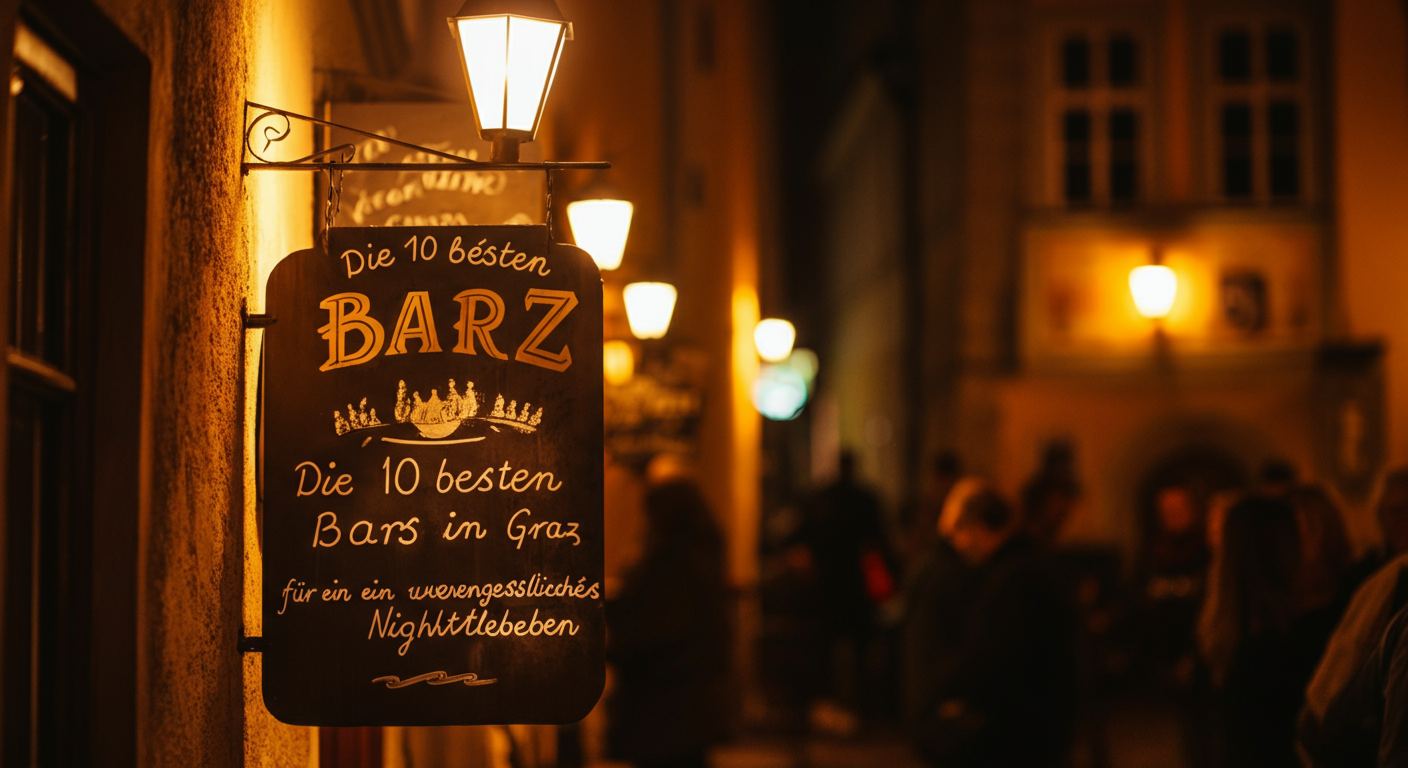 Die 10 bésten
BARZ
Die 10 besten
Bars in Graz
für ein ein
Nighttlebeben